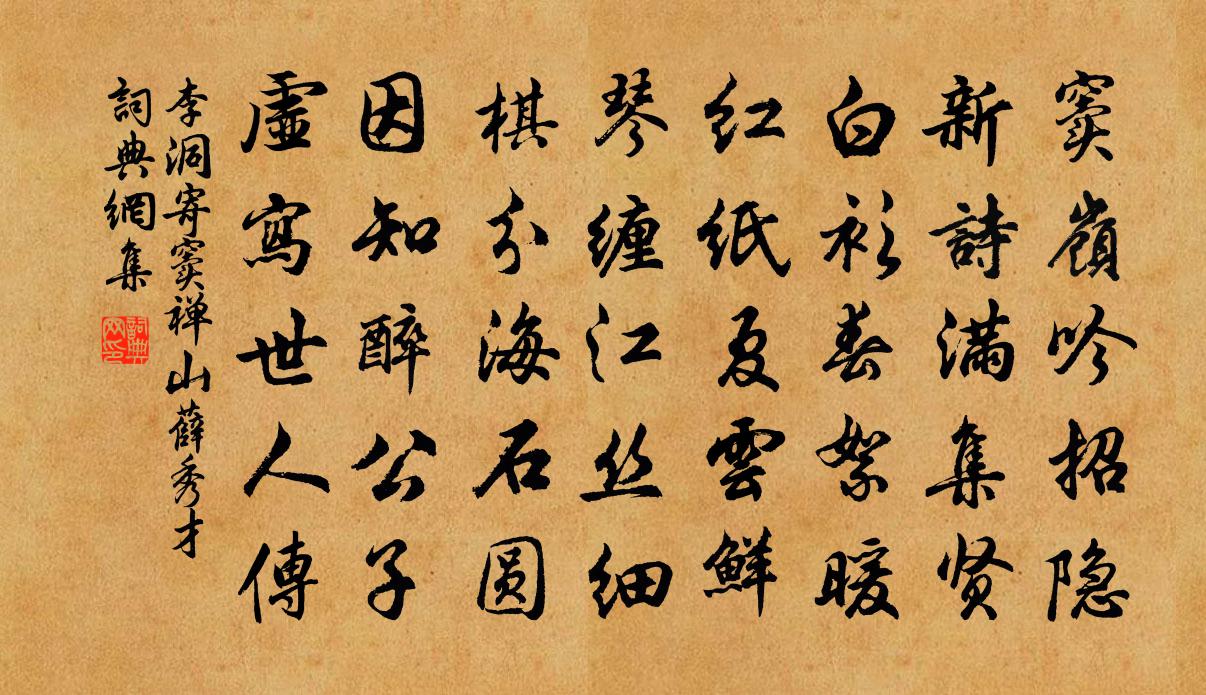 窦嶺吟招隐
新詩満集贤
白衫春絮暖
红纸夏雲鮮
琴缠江丝细
棋分海石圆
因知醉公子
虚寫世人傳
李洞寄窦禅山薛秀才
詞典網集
詞典
网印